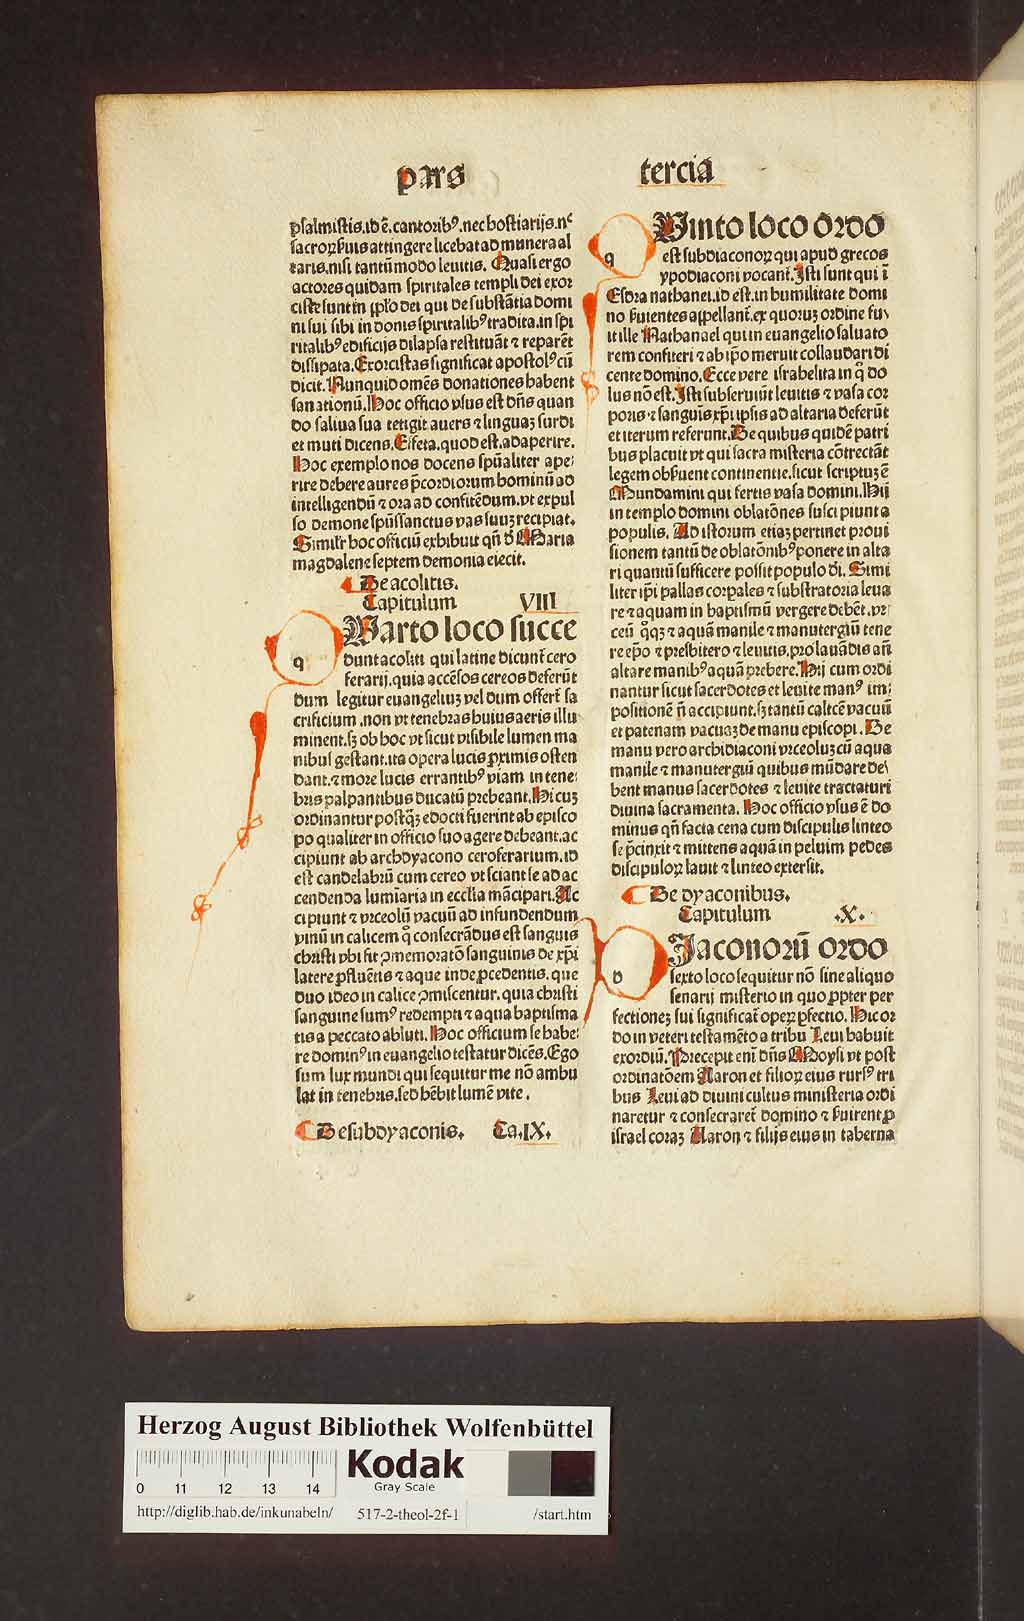 pars tercia
psalmistis.id ē.cantorib⁹.nec hostiarijs.nᶜ
sacroꝝ ẜuis attingere licebat ad munera al
taris.nisi tantūmodo leuitis. Quasi ergo
actores quidam spiritales templi dei exor
ciste sunt in pp̄lo dei qui de substātia domi
ni sui sibi in donis spiritalib⁹ tradita.in sp̄i
ritalib⁹ edificijs dilapsa restituāt ⁊ reparēt
dissipata. Exorcistas significat apostol⁹ cū
dicit. Nunquid omēs donationes habent
sanationū. Hoc officio vsus est dn̄s quan
do saliua sua tetigit aures ⁊ linguaꝫ surdi
et muti dicens. Effeta.quod est.adaperire.
Hoc exemplo nos docens spūaliter ape⸗
rire debere aures p̄cordiorum hominū ad
intelligendū ⁊ ora ad confitēdum.vt expul
so demone spūssanctus vas suuꝫ recipiat.
Similr̄ hoc officiū exhibuit qn̄ d̄ Maria
magdalene septem demonia eiecit.
De acolitis.
Capitulum VIII
QUarto loco succe
dunt acoliti qui latine dicunt̄ cero
ferarij.quia accēsos cereos deferūt
dum legitur euangeliuꝫ vel dum offert̄ sa
crificium.non vt tenebras huius aeris illu
minent.sꝫ ob hoc vt sicut visibile lumen ma
nibus gestant.ita opera lucis ꝓximis osten
dant.⁊ more lucis errantib⁹ viam in tene⸗
bris palpantibus ducatū prebeant. Hi cuꝫ
ordinantur postqꝫ edocti fuerint ab episco
po qualiter in officio suo agere debeant.ac
cipiunt ab archdyacono ceroferarium.id
est candelabrū cum cereo vt sciant se ad ac
cendenda lumīaria in ecclīa mācipari. Ac
cipiunt ⁊ vrceolū vacuū ad infundendum
vinū in calicem q̊ consecrādus est sanguis
christi vbi fit ꝯmemoratō sanguinis de xp̄i
latere ꝓfluētis ⁊ aque inde ꝓcedentis. que
duo ideo in calice ꝯmiscentur. quia christi
sanguine sum⁹ redempti ⁊ aqua baptisma
tis a peccato abluti. Hoc officium se habe⸗
re domin⁹ in euangelio testatur dicēs. Ego
sum lux mundi qui sequitur me nō ambu
lat in tenebris.sed hēbit lumē vite.
De subdyaconis. Ca.IX.
QUinto loco ordo
est subdiaconoꝝ qui apud grecos
ypodiaconi vocant̄. Isti sunt qui ī
Esdra nathanei.id est.in humilitate domi
no ẜuientes appellant̄.ex quoruꝫ ordine fu
it ille Nathanael qui in euangelio saluato
rem confiteri ⁊ ab ip̄o meruit collaudari di
cente domino. Ecce vere israhelita in q̊ do
lus nō est. Isti subseruiūt leuitis ⁊ vasa cor
poris ⁊ sanguis xp̄i ipsis ad altaria deferūt
et iterum referunt. De quibus quidē patri
bus placuit vt qui sacra misteria cōtrectāt
legem obẜuent continentie.sicut scriptuꝫ ē
Mundamini qui fertis vasa domini. Hij
in templo domini oblatōnes suscipiunt a
populis. Ad istorum etiaꝫ pertinet proui
sionem tantū de oblatōnib⁹ ponere in alta
ri quantū sufficere possit populo di. Simi
liter ip̄i pallas corpales ⁊ substratoria leua
re ⁊ aquam in baptismū vergere debēt.vr
ceū q̊qꝫ ⁊ aquā manile ⁊ manutergiū tene
re ep̄o ⁊ presbitero ⁊ leuitis.pro lauādis an̄
altare manib⁹ aquā prebere. Hij cum ordi
nantur sicut sacerdotes et leuite man⁹ im⸗
positionē n̄ accipiunt.sꝫ tantū calicē vacuū
et patenam vacuaꝫ de manu episcopi. De
manu vero archidiaconi vrceoluꝫ cū aqua
manile ⁊ manutergiū quibus mūdare de
bent manus sacerdotes ⁊ leuite tractaturi
diuina sacramenta. Hoc officio vsus ē do
minus qn̄ facta cena cum discipulis linteo
se p̄cinxit ⁊ mittens aquā in peluim pedes
discipuloꝝ lauit ⁊ linteo extersit.
De dyaconibus.
Capitulum .X.
DIaconorū ordo
sexto loco sequitur nō sine aliquo
senarij misterio in quo ꝓpter per
fectioneꝫ sui significat̄ operꝝ ꝑfectio. Hic or
do in veteri testamēto a tribu Leui habuit
exordiū. Precepit enī dn̄s Moysi vt post
ordinatōem Aaron et filioꝝ eius rurs⁹ tri
bus Leui ad diuini cultus ministeria ordi
naretur ⁊ consecraret̄ domino ⁊ ẜuirent ꝓ
israel coraꝫ Aaron ⁊ filijs eius in taberna
Herzog August Bibliothek Wolfenbüttel
0 11 12 13 14
Kodak
Gray Scale
http://diglib.hab.de/inkunabeln/ 517-2-theol-2f-1 /start.htm